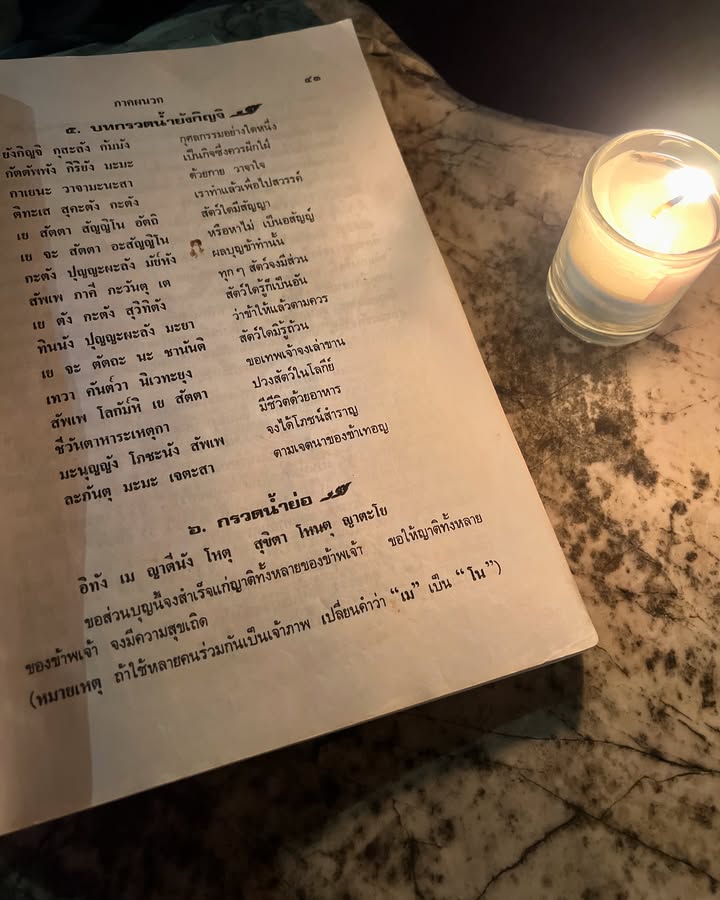 ภาคผนวก ๔๓
๕. บทกรวดน้ำยังกิญจิ
ยังกิญจิ กุสะลัง กัมมัง กุศลกรรมอย่างใดหนึ่ง
กัตตัพพัง กิริยัง มะมะ เป็นกิจซึ่งควรฝึกใฝ่
กาเยนะ วาจามะนะสา ด้วยกาย วาจาใจ
ติทะเส สุคะตัง กะตัง เราทำแล้วเพื่อไปสวรรค์
เย สัตตา สัญญิโน อัตถิ สัตว์ใดมีสัญญา
เย จะ สัตตา อะสัญญิโน หรือหาไม่ เป็นอสัญญี
กะตัง ปุญญะผะลัง มัยหัง ผลบุญข้าทำนั้น
สัพเพ ภาคี ภะวันตุ เต ทุก ๆ สัตว์จงมีส่วน
เย ตัง กะตัง สุวิทิตัง สัตว์ใดรู้ก็เป็นอัน
ทินนัง ปุญญะผะลัง มะยา ว่าข้าให้แล้วตามควร
เย จะ ตัตถะ นะ ชานันติ สัตว์ใดมิรู้ถ้วน
เทวา คันต์วา นิเวทะยุง ขอเทพเจ้าจงเล่าขาน
สัพเพ โลกัม์หิ เย สัตตา ปวงสัตว์ในโลกีย์
ชีวันตาหาระเหตุกา มีชีวิตด้วยอาหาร
มะนุญญัง โภชะนัง สัพเพ จงได้โภชน์สำราญ
ละภันตุ มะมะ เจตะสา ตามเจตนาของข้าเทอญ
๖. กรวดน้ำย่อ
อิทัง เม ญาตีนัง โหตุ สุขิตา โหนตุ ญาตะโย
ขอส่วนบุญนี้จงสำเร็จแก่ญาติทั้งหลายของข้าพเจ้า ขอให้ญาติทั้งหลาย
ของข้าพเจ้า จงมีความสุขเถิด
(หมายเหตุ ถ้าใช้หลายคนร่วมกันเป็นเจ้าภาพ เปลี่ยนคำว่า “เม” เป็น “โน”)